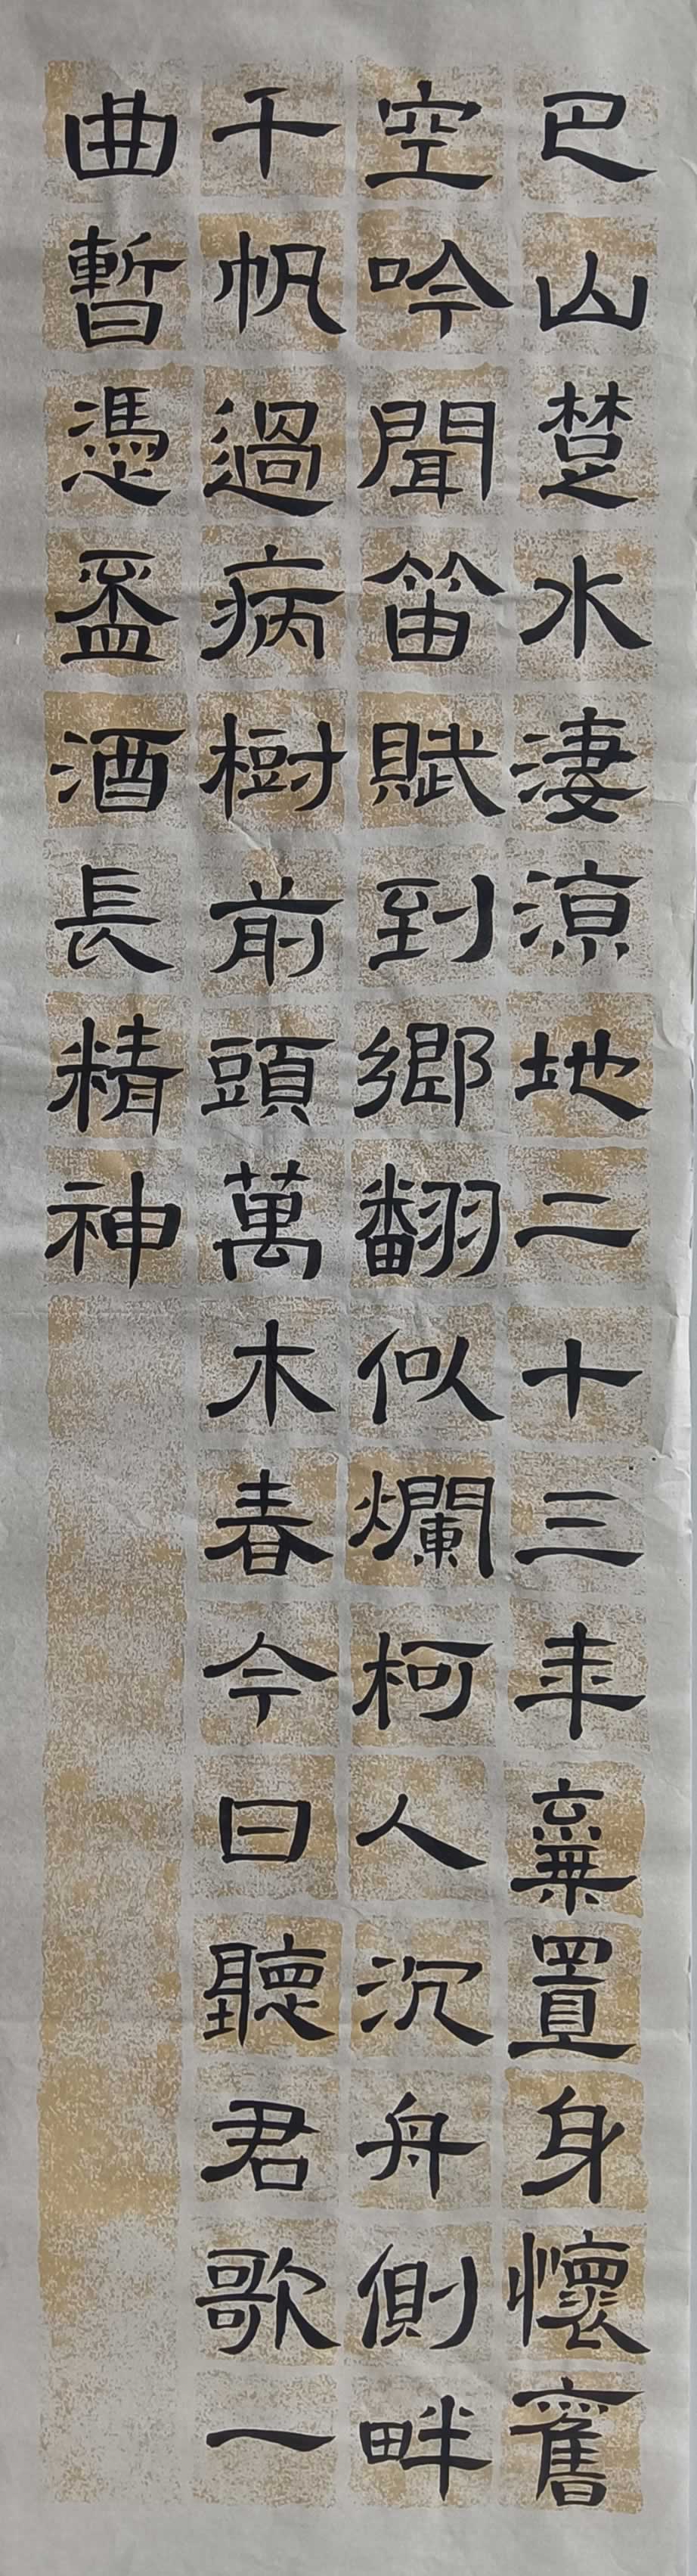 巴山楚水淒涼地二十三年棄置身懷舊
空吟聞笛賦到鄉翻似爛柯人沉舟側畔
千帆過病樹前頭萬木春今日聽君歌一
曲暫憑盃酒長精神